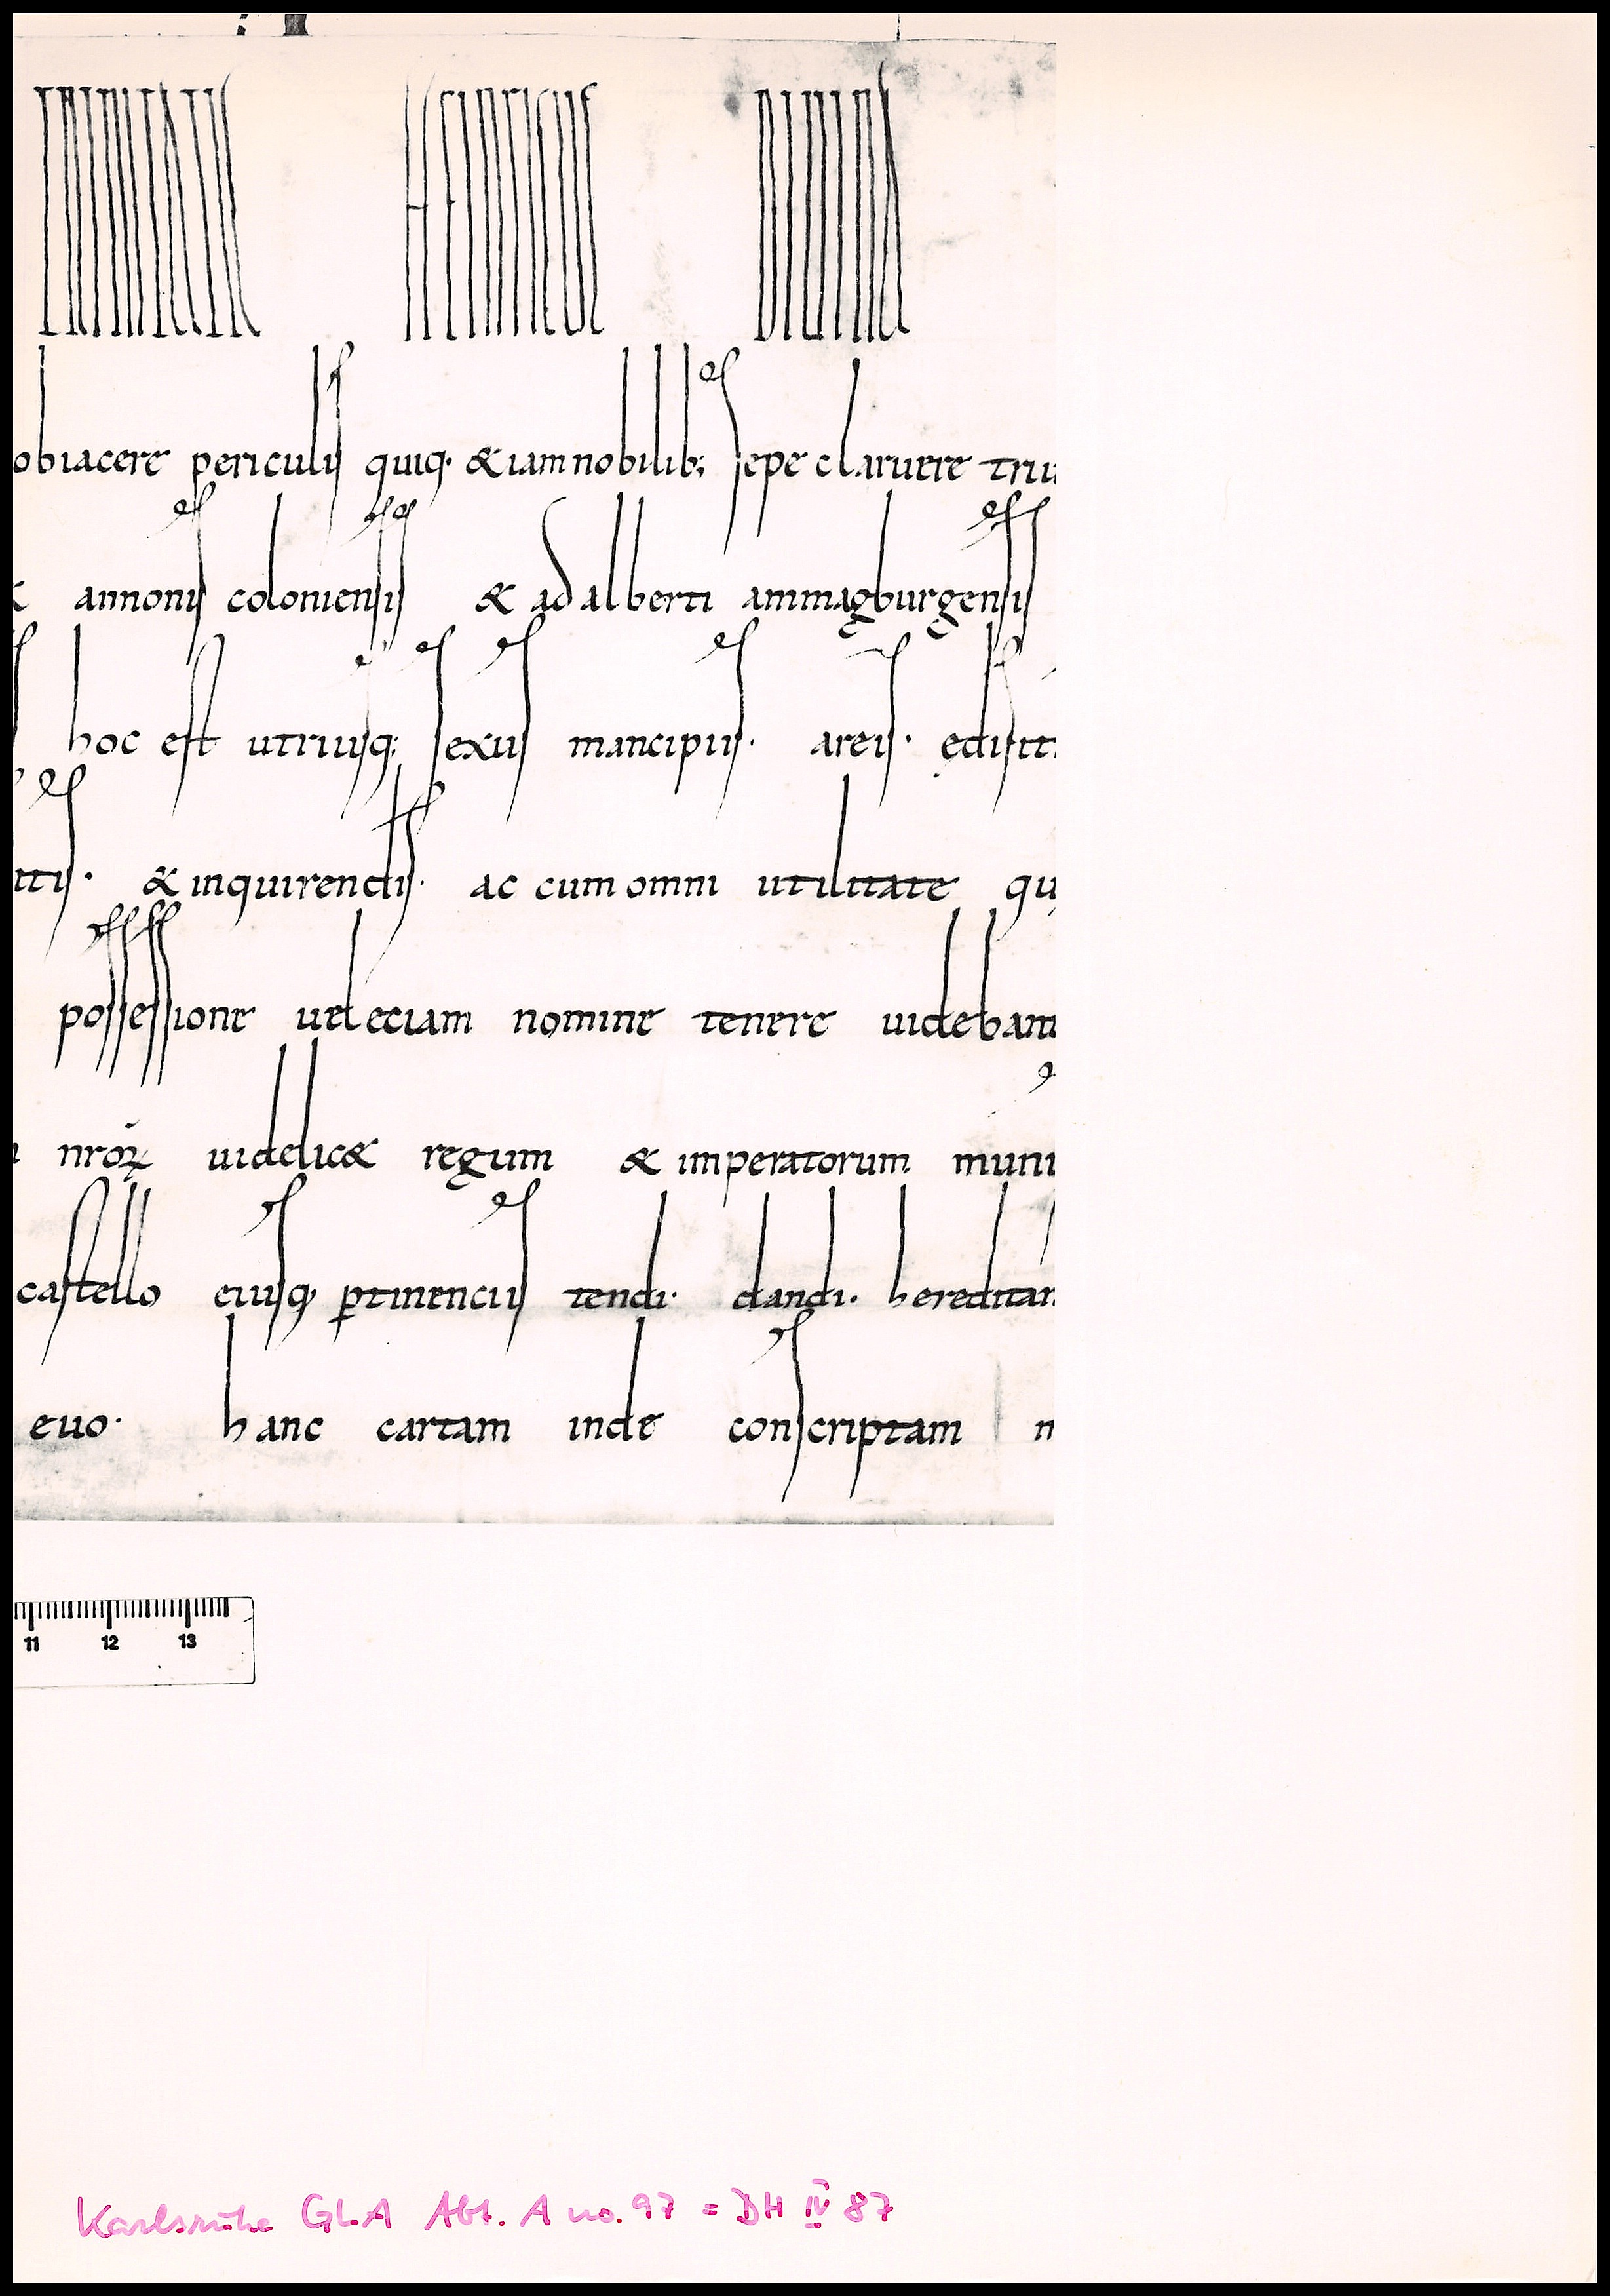 TRINITATIS HEINRICUS DIVINA
obiacere periculis quiq· & iam nobilib; sepe claruere tru
& annonis coloniensis & adalberti ammagburgensis
hoc est utriusq; sexus mancipiis· areis· edifiti
itis· & inquirendis· ac cum omni utilitate qu
possessione uel eciam nomine tenere uidebam
nroꝝ uidelic& regum & imperatorum muni
castello eiusq; ꝑtinenciis tendi· dandi· hereditan
euo· hanc cartam inde conscriptam m
11 12 13
Karlsruhe GLA Abt. A no. 97 = DH IV 87